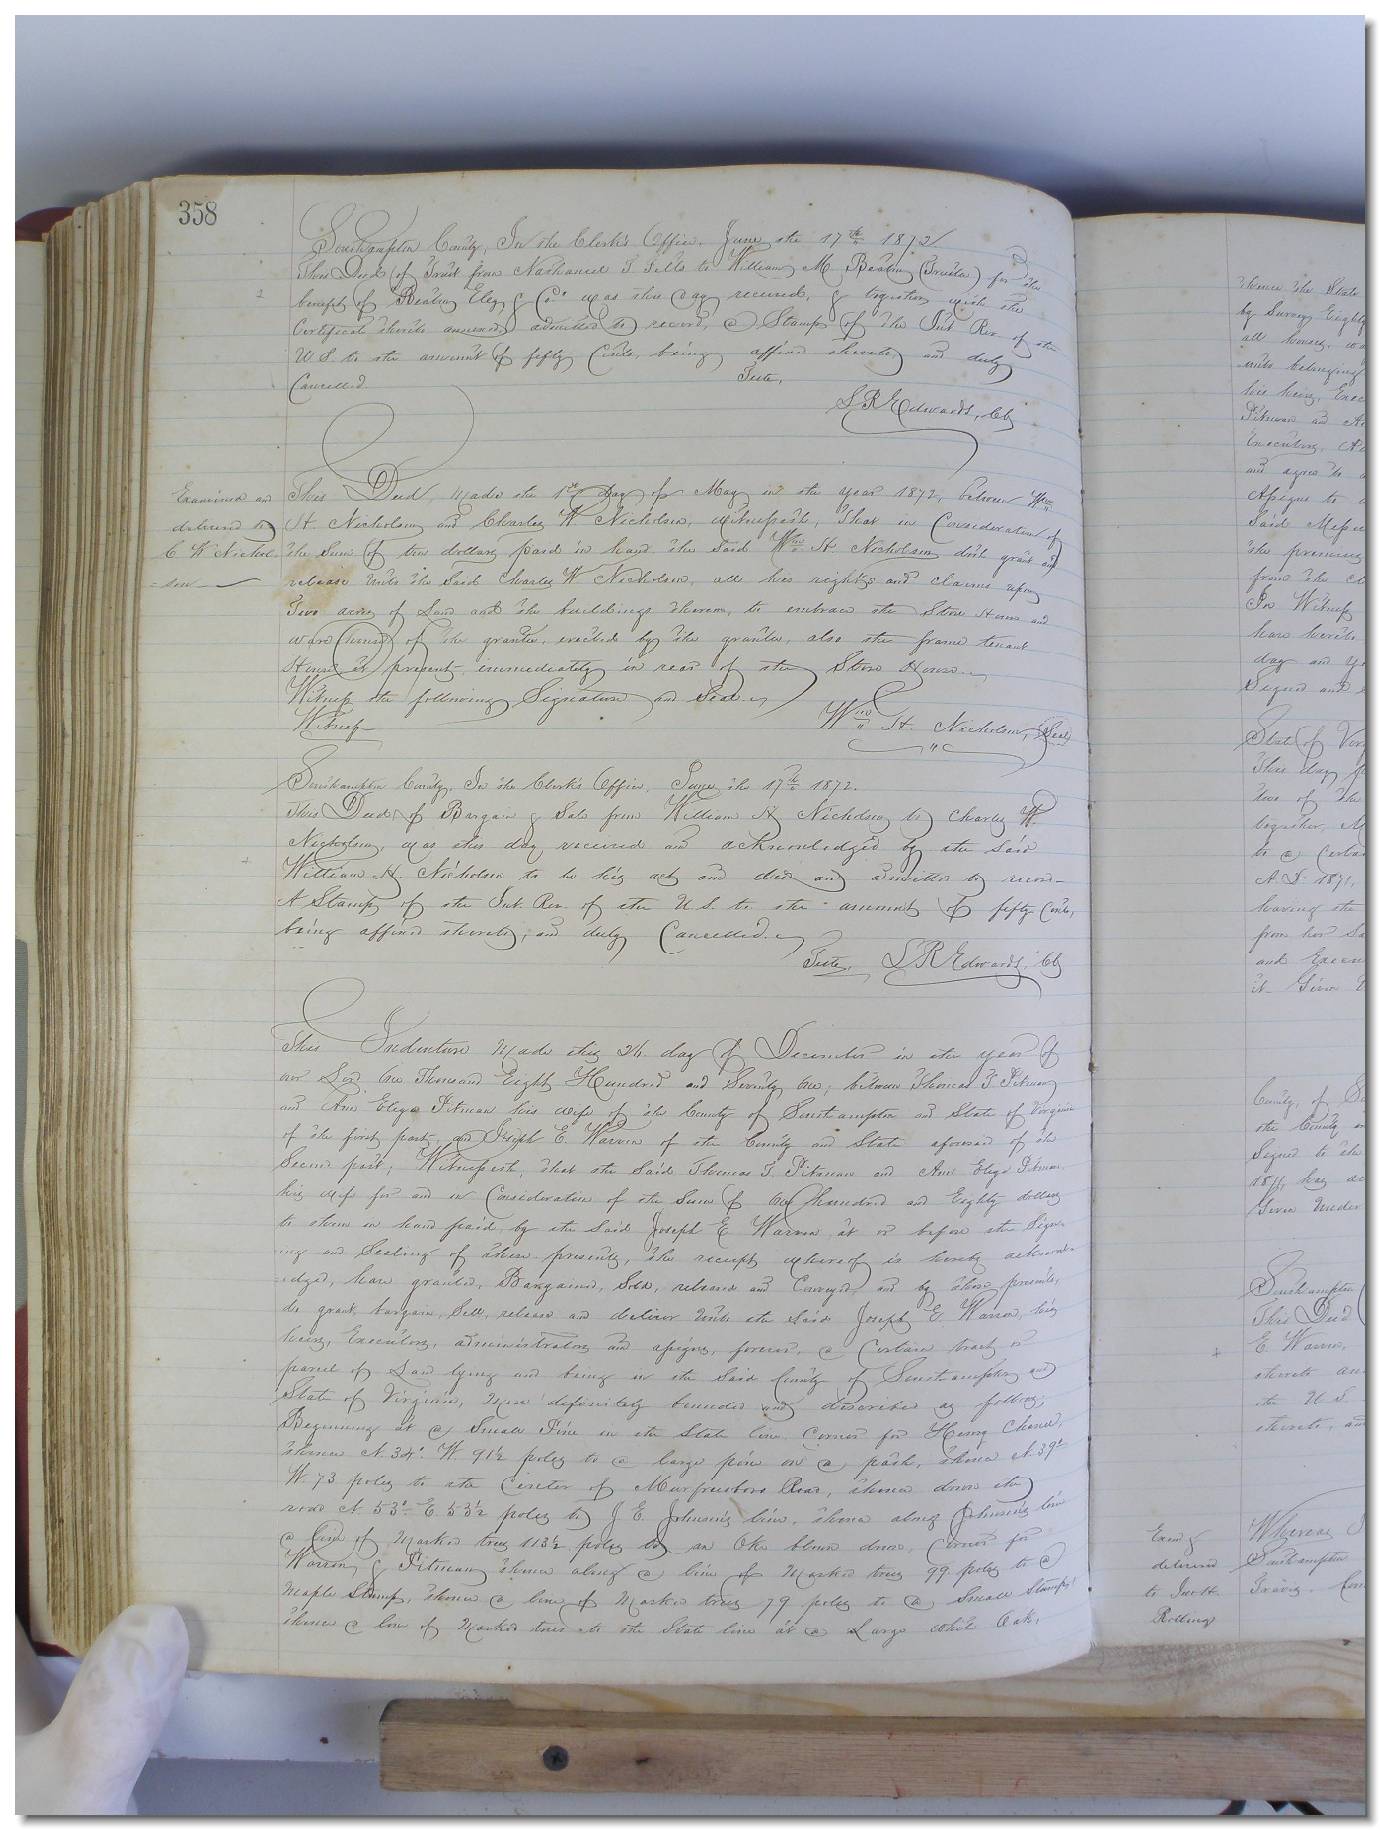 358
Southampton County, In the Clerk's Office, June the 17th 1872
This Deed of Trust from Nathaniel T Felts to William M Beaton (Trustee) for the
benefit of Beaton Eley & Co. was this day received, & together with the
Certificate thereto annexed admitted to record, a Stamp of the Int. Rev. of the
U S to the amount of fifty Cents, being affixed thereto and duly
Cancelled. Teste,
L R Edwards, Clk
Examined and
delivered to
C W Nichol
=son
This Deed, made the 1st day of May in the year 1872, between Wm
H. Nicholson and Charles W Nicholson, Witnesseth, That in Consideration of
the Sum of ten dollars paid in hand the said Wm H. Nicholson doth grant and
release unto the Said Charles W Nicholson, all his rights and claims upon
Two acres of Land and the buildings thereon, to embrace the Store House and
ware house of the grantee, erected by the grantee, also the frame tenant
House at present immediately in rear of the Store House.
Witness the following Signature and Seal.
Witness Wm H. Nicholson, (Seal)
Southampton County, In the Clerk's Office, June the 17th 1872.
This Deed of Bargain & Sale from William H Nicholson to Charles W.
Nicholson, was this day received and acknowledged by the said
William H. Nicholson to be his act and deed and admitted to record
A Stamp of the Int. Rev. of the U.S. to the amount of fifty Cents,
being affixed thereto, and duly Cancelled.
Teste, L R Edwards, Clk
This Indenture made this 26. day of December in the year of
our Lord One Thousand Eight Hundred and Seventy One; between Thomas T Pitman
and Ann Eliza Pitman his wife of the County of Southampton and State of Virginia
of the first part, and Joseph E. Warren of the County and State aforesaid of the
Second part; Witnesseth, that the Said Thomas T. Pitman and Ann Eliza Pitman
his wife for and in Consideration of the Sum of One hundred and Eighty dollars
to them in hand paid by the Said Joseph E Warren, at or before the Sign-
ing and Sealing of these presents, the receipt whereof is hereby acknowl-
edged, have granted, Bargained, Sold, released and Conveyed, and by these presents,
do grant, bargain, Sell, release and deliver Unto the Said Joseph E. Warren, his
heirs, Executors, administrators and assigns, forever, a Certain tract or
parcel of Land lying and being in the Said County of Southampton and
State of Virginia, more definitely bounded and described as follows;
Beginning at a Small Pine in the State line Corner for Henry
thence N. 34° W. 91½ poles to a large pine on a path, thence N. 39°
W. 73 poles to the Center of Murfreesboro Road, thence down the
road N. 53° E. 53½ poles to J E. Johnson's line, thence along Johnson's line
a line of marked trees 113½ poles to an Oke blown down, Corner for
Warren & Pitman thence along a line of marked trees 99 poles to a
Maple Stump, thence a line of marked trees 79 poles to a Small Stump
thence a line of marked trees to the State line at a Large white Oak,
thence the State
by Survey Eighty
all houses,
belonging
his heirs, Exec
Pitman and
Executors,
and agree to
Assigns to
Said
the premises
from the
In Witness
have hereto
day and
Signed and
State of Vir
This day
two of the
together,
to a Certai
A. D. 1871,
having the
from her
and Execu
it Given
County, of So
the County
Signed to the
1871, has
Given Under
Southampton
This Deed
E. Warren,
thereto an
the U.S.
thereto, an
Exam'd &
delivered
to Jno H.
Whereas
Southampton